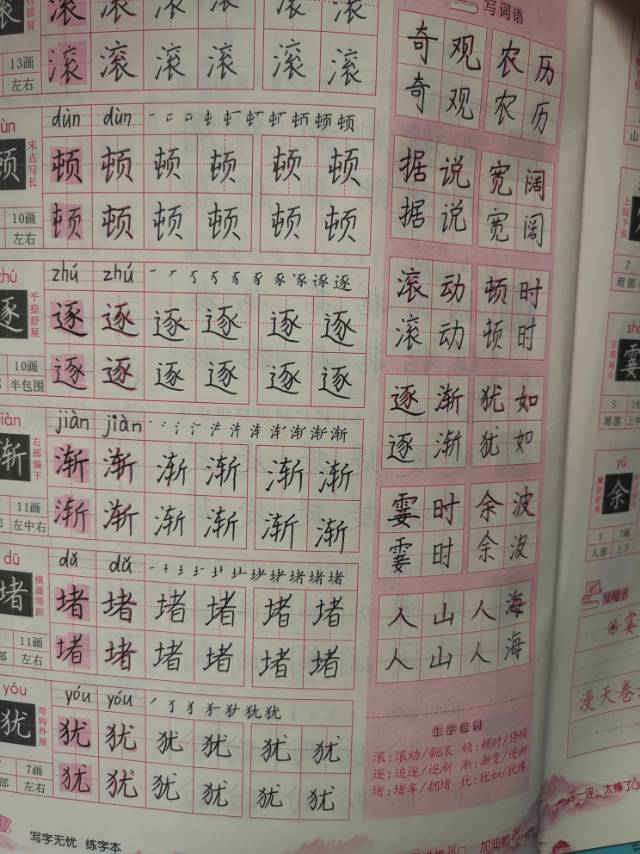 收捺展
滚 滚 滚 滚 滚 滚 滚
13画
左右
dùn dùn
末点写长
顿 顿 顿 顿 顿 顿 顿
10画
顿 顿 顿 顿 顿 顿
左右
zhú zhú zhú
平捺舒展
逐 逐 逐 逐 逐 逐 逐
10画
逐 逐 逐 逐 逐 逐
半包围
jiàn jiàn
右部偏下
渐 渐 渐 渐 渐 渐 渐
11画
渐 渐 渐 渐 渐 渐
左中右
dǔ dǔ
横画等距
堵 堵 堵 堵 堵 堵 堵
11画
堵 堵 堵 堵 堵 堵
左右
yóu yóu yóu
弯钩外展
犹 犹 犹 犹 犹 犹 犹
7画
犹 犹 犹 犹 犹 犹
左右
写字无忧 练字本
写词语
奇观 农历
奇观 农历
据说 宽阔
据说 宽阔
滚动 顿时
滚动 顿时
逐渐 犹如
逐渐 犹如
霎时 余波
霎时 余波
人山人海
人山人海
生字组词
滚：滚动/翻滚 顿：顿时/停顿
逐：追逐/逐渐 渐：渐变/逐渐
堵：堵车/拥堵 犹：犹如/犹豫
加油
雨部
霎
yú
余
7画
人部 上下
霎
漫天卷
评一评：太棒了